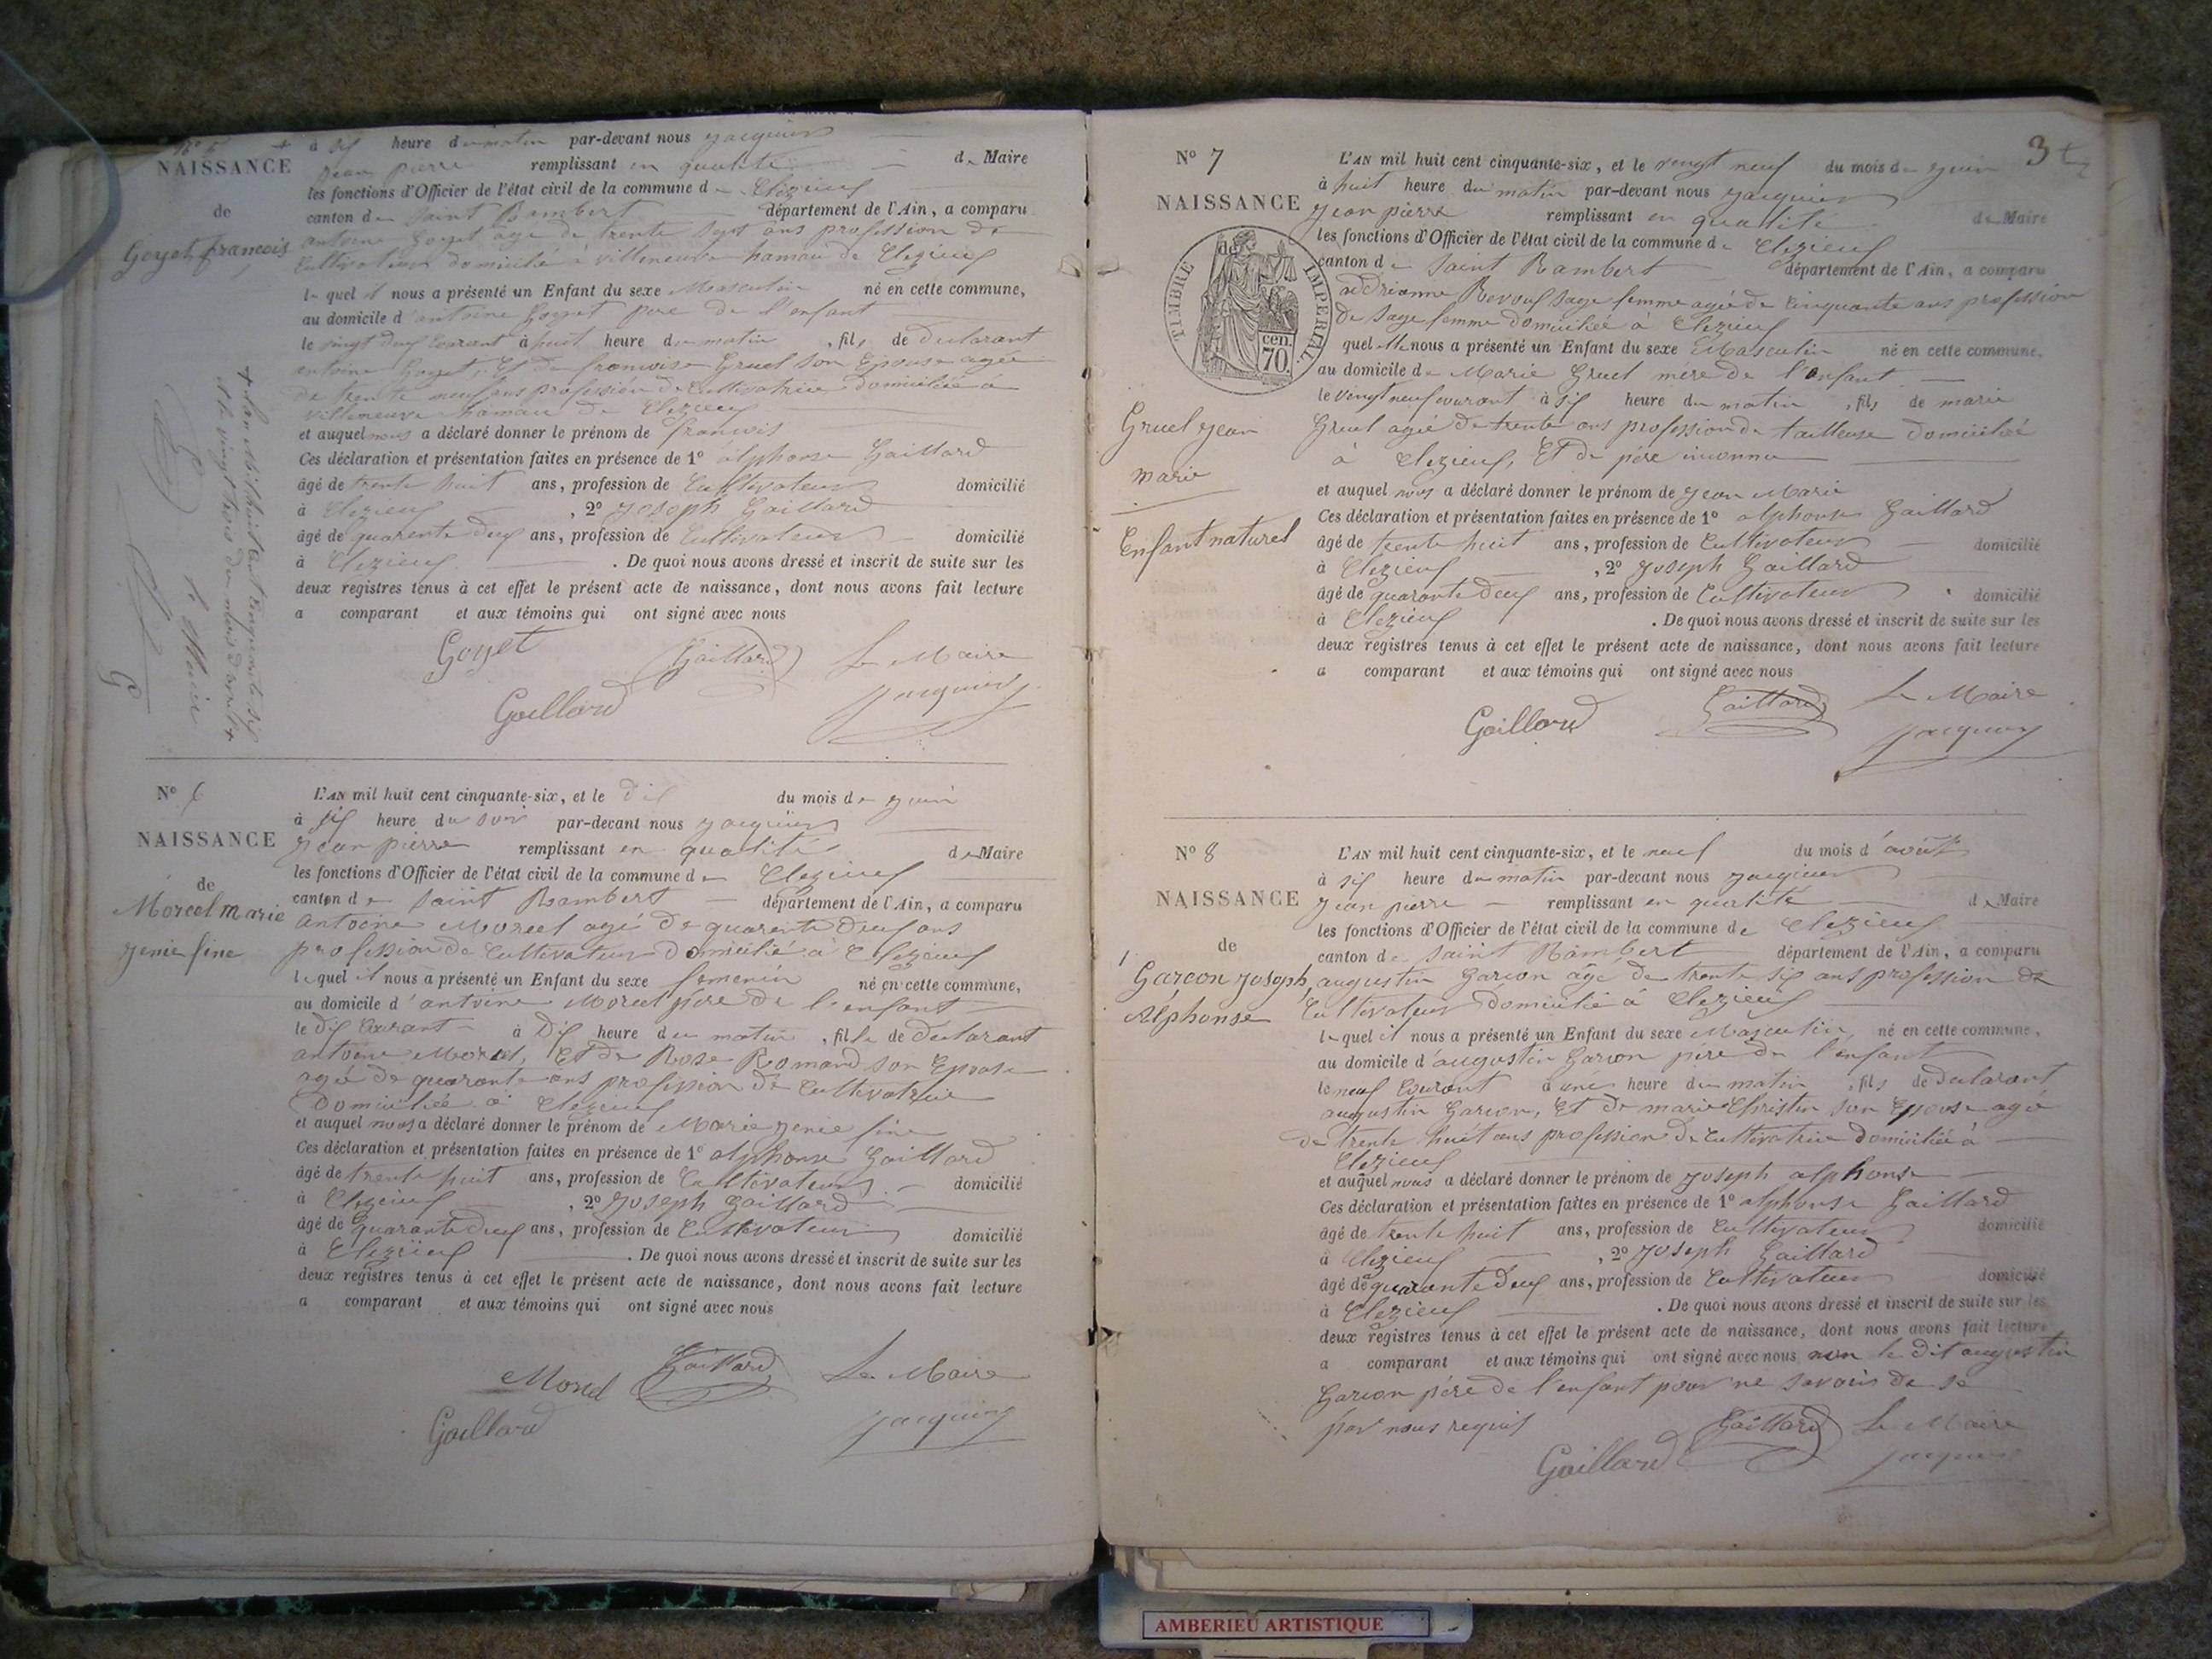 NAISSANCE
de
Goyet francois
à six heure du matin par-devant nous jacquier
jean pierre remplissant en qualité de Maire
les fonctions d'Officier de l'état civil de la commune de Clezieux
canton de saint Rambert département de l'Ain, a comparu
antoine Goyet age de trente sept ans profession de
Cultivateur domicilie à villeneuve hamau de Clezieux
le quel il nous a présenté un Enfant du sexe Masculin né en cette commune,
au domicile d'antoine Goyet pere de l'enfant
le vingt deux Courant à huit heure du matin , fils de declarant
antoine Goyet, Et de francoise Gruel son Epouse agée
de trente neuf ans profession de Cultivatrice domiciliée à
villeneuve hamau de Clezieux
et auquel nous a déclaré donner le prénom de francois
Ces déclaration et présentation faites en présence de 1º alphonse Gaillard
âgé de trente huit ans, profession de Cultivateur domicilié
à Clezieux , 2º joseph Gaillard
âgé de quarente deux ans, profession de Cultivateur domicilié
à Clezieux . De quoi nous avons dressé et inscrit de suite sur les
deux registres tenus à cet effet le présent acte de naissance, dont nous avons fait lecture
a comparant et aux témoins qui ont signé avec nous
Goyet Gaillard Le Maire
Gaillard jacquier
+ L'an Mil huit Cent Cinquante six
et le vingt trois du mois d'avril +
le Maire
G
Nº 6
NAISSANCE
de
Morcel marie
jenie fine
L'AN mil huit cent cinquante-six, et le dix du mois de juin
à six heure du soir par-devant nous jacquier
jean pierre remplissant en qualité de Maire
les fonctions d'Officier de l'état civil de la commune de Clezieux
canton de saint Rambert département de l'Ain, a comparu
antoine Morcel agé de quarente deux ans
profession de Cultivateur domicilié à Clezieux
le quel il nous a présenté un Enfant du sexe femenin né en cette commune,
au domicile d'antoine Morcel pere de l'enfant
le dix Courant à dix heure du matin , fille de declarant
antoine Morcel, Et de Rose Romand son Epouse
agée de quarante ans profession de Cultivatrice
domiciliée à Clezieux
et auquel nous a déclaré donner le prénom de Marie jenie fine
Ces déclaration et présentation faites en présence de 1º alphonse Gaillard
âgé de trente huit ans, profession de Cultivateur domicilié
à Clezieux , 2º joseph Gaillard
âgé de quarante deux ans, profession de Cultivateur domicilié
à Clezieux . De quoi nous avons dressé et inscrit de suite sur les
deux registres tenus à cet effet le présent acte de naissance, dont nous avons fait lecture
a comparant et aux témoins qui ont signé avec nous
Morcel Gaillard Le Maire
Gaillard jacquier
3
Nº 7
NAISSANCE
de
TIMBRE IMPÉRIAL
70 cen.
Gruel jean
marie
Enfant naturel
L'AN mil huit cent cinquante-six, et le vingt neuf du mois de juin
à huit heure du matin par-devant nous jacquier
jean pierre remplissant en qualité de Maire
les fonctions d'Officier de l'état civil de la commune de Clezieux
canton de saint Rambert département de l'Ain, a comparu
addrienne sage femme agée de Cinquante ans profession
de sage femme domiciliée à Clezieux
quel elle nous a présenté un Enfant du sexe Masculin né en cette commune,
au domicile de Marie Gruel mere de l'enfant
le vingt neuf courant à six heure du matin , fils de marie
Gruel agée de trente ans profession de tailleuse domiciliée
à Clezieux, Et de père inconnu
et auquel nous a déclaré donner le prénom de jean Marie
Ces déclaration et présentation faites en présence de 1º alphonse Gaillard
âgé de trente huit ans, profession de Cultivateur domicilié
à Clezieux , 2º joseph Gaillard
âgé de quarante deux ans, profession de Cultivateur domicilié
à Clezieux . De quoi nous avons dressé et inscrit de suite sur les
deux registres tenus à cet effet le présent acte de naissance, dont nous avons fait lecture
a comparant et aux témoins qui ont signé avec nous
Gaillard Gaillard Le Maire
jacquier
Nº 8
NAISSANCE
de
Garcon joseph
Alphonse
L'AN mil huit cent cinquante-six, et le neuf du mois d'août
à six heure du matin par-devant nous jacquier
jean pierre remplissant en qualité de Maire
les fonctions d'Officier de l'état civil de la commune de Clezieux
canton de saint Rambert département de l'Ain, a comparu
augustin Garcon agé de trente six ans profession de
Cultivateur domicilié à Clezieux
le quel il nous a présenté un Enfant du sexe Masculin né en cette commune,
au domicile d'augustin Garcon pere de l'enfant
le neuf Courant à une heure du matin , fils de declarant
augustin Garcon, Et de marie Christin son Epouse agé
de trente huit ans profession de Cultivatrice domiciliée à
Clezieux
et auquel nous a déclaré donner le prénom de joseph alphonse
Ces déclaration et présentation faites en présence de 1º alphonse Gaillard
âgé de trente huit ans, profession de Cultivateur domicilié
à Clezieux , 2º joseph Gaillard
âgé de quarante deux ans, profession de Cultivateur domicilié
à Clezieux . De quoi nous avons dressé et inscrit de suite sur les
deux registres tenus à cet effet le présent acte de naissance, dont nous avons fait lecture
a comparant et aux témoins qui ont signé avec nous non le dit augustin
Garcon père de l'enfant pour ne savoir de ce
par nous requis
Gaillard Gaillard Le Maire
jacquier
AMBERIEU ARTISTIQUE